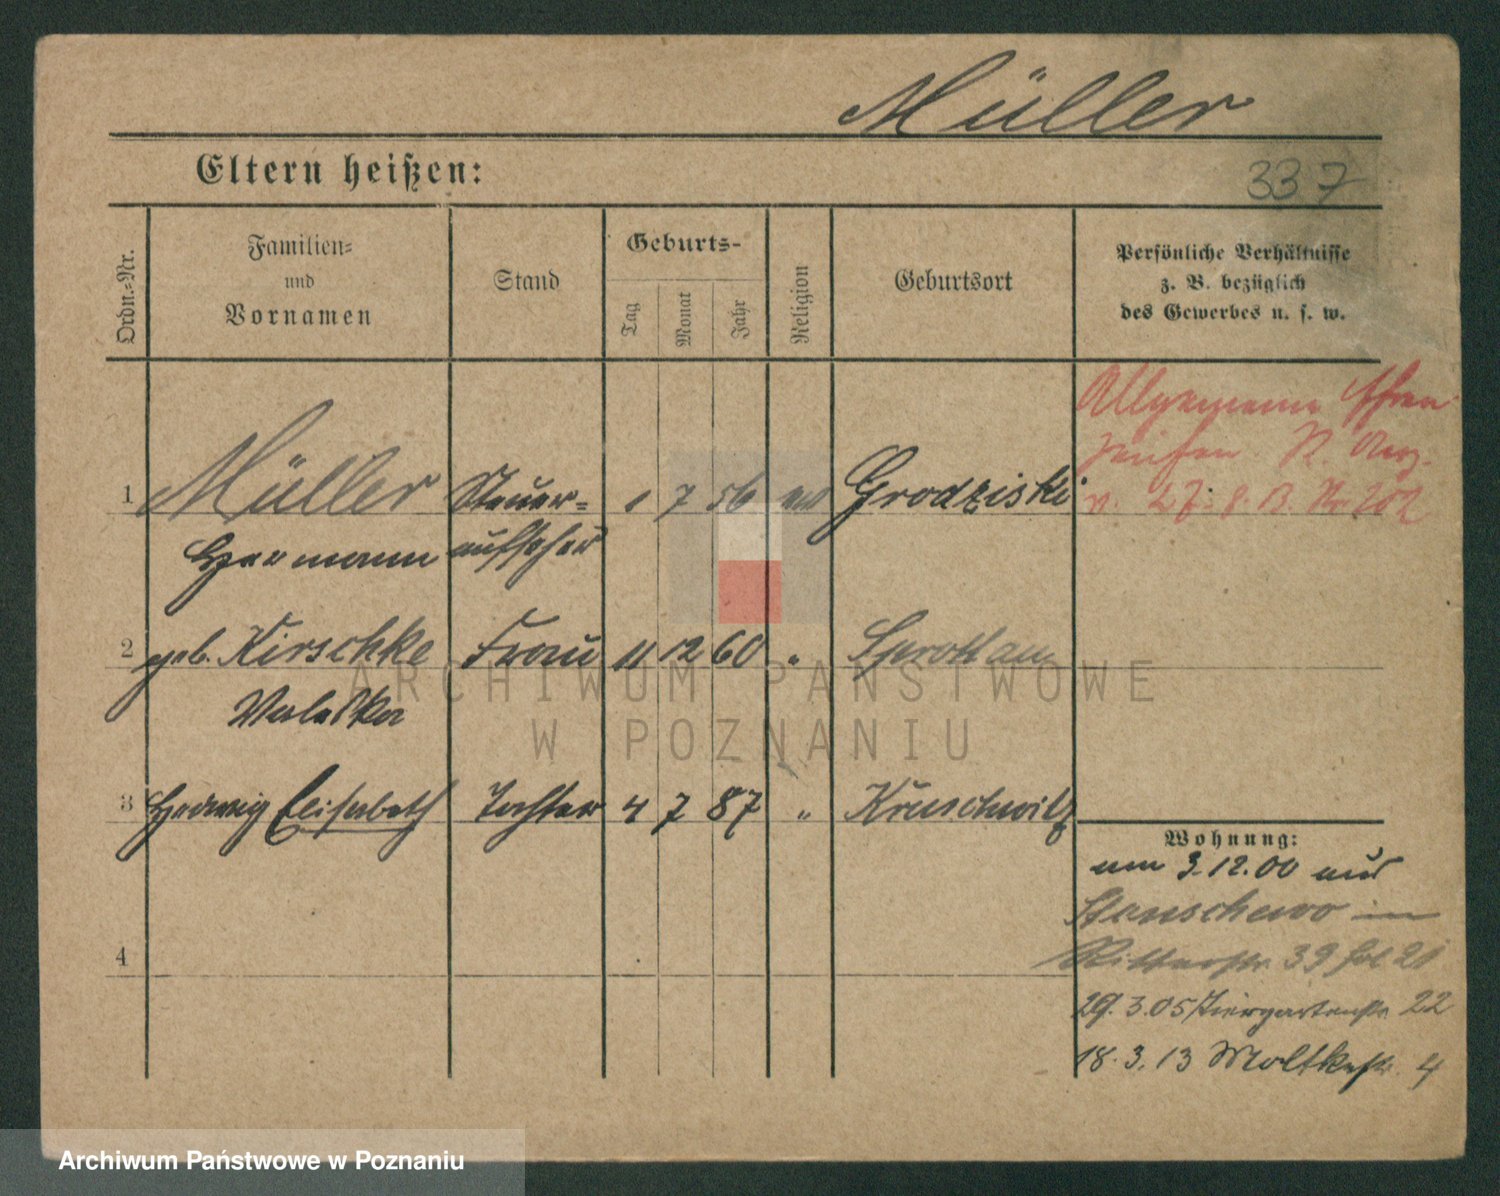 Müller
Eltern heißen:
337
Ordn.=Nr.
Familien=
und
Vornamen
Stand
Geburts-
Tag
Monat
Jahr
Religion
Geburtsort
Persönliche Verhältnisse
z. B. bezüglich
des Gewerbes u. s. w.
1 Müller Steuer= 1 7 56 ev Grodziski
Hermann aufseher
Allgemeine Ehren
zeichen. R. Anz.
v. 27. 8. 13. Nr 202
2 geb. Kirschke Frau 11 12 60 " Sprottau
Valeska
3 Hedwig Elisabeth Tochter 4 7 87 " Kruschwitz
4
Wohnung:
am 3.12.00 aus
in
Ritterstr. 39 21
29.3.05 Tiergartenstr. 22
18.3.13 Moltkestr. 4
ARCHIWUM PAŃSTWOWE
W POZNANIU
Archiwum Państwowe w Poznaniu